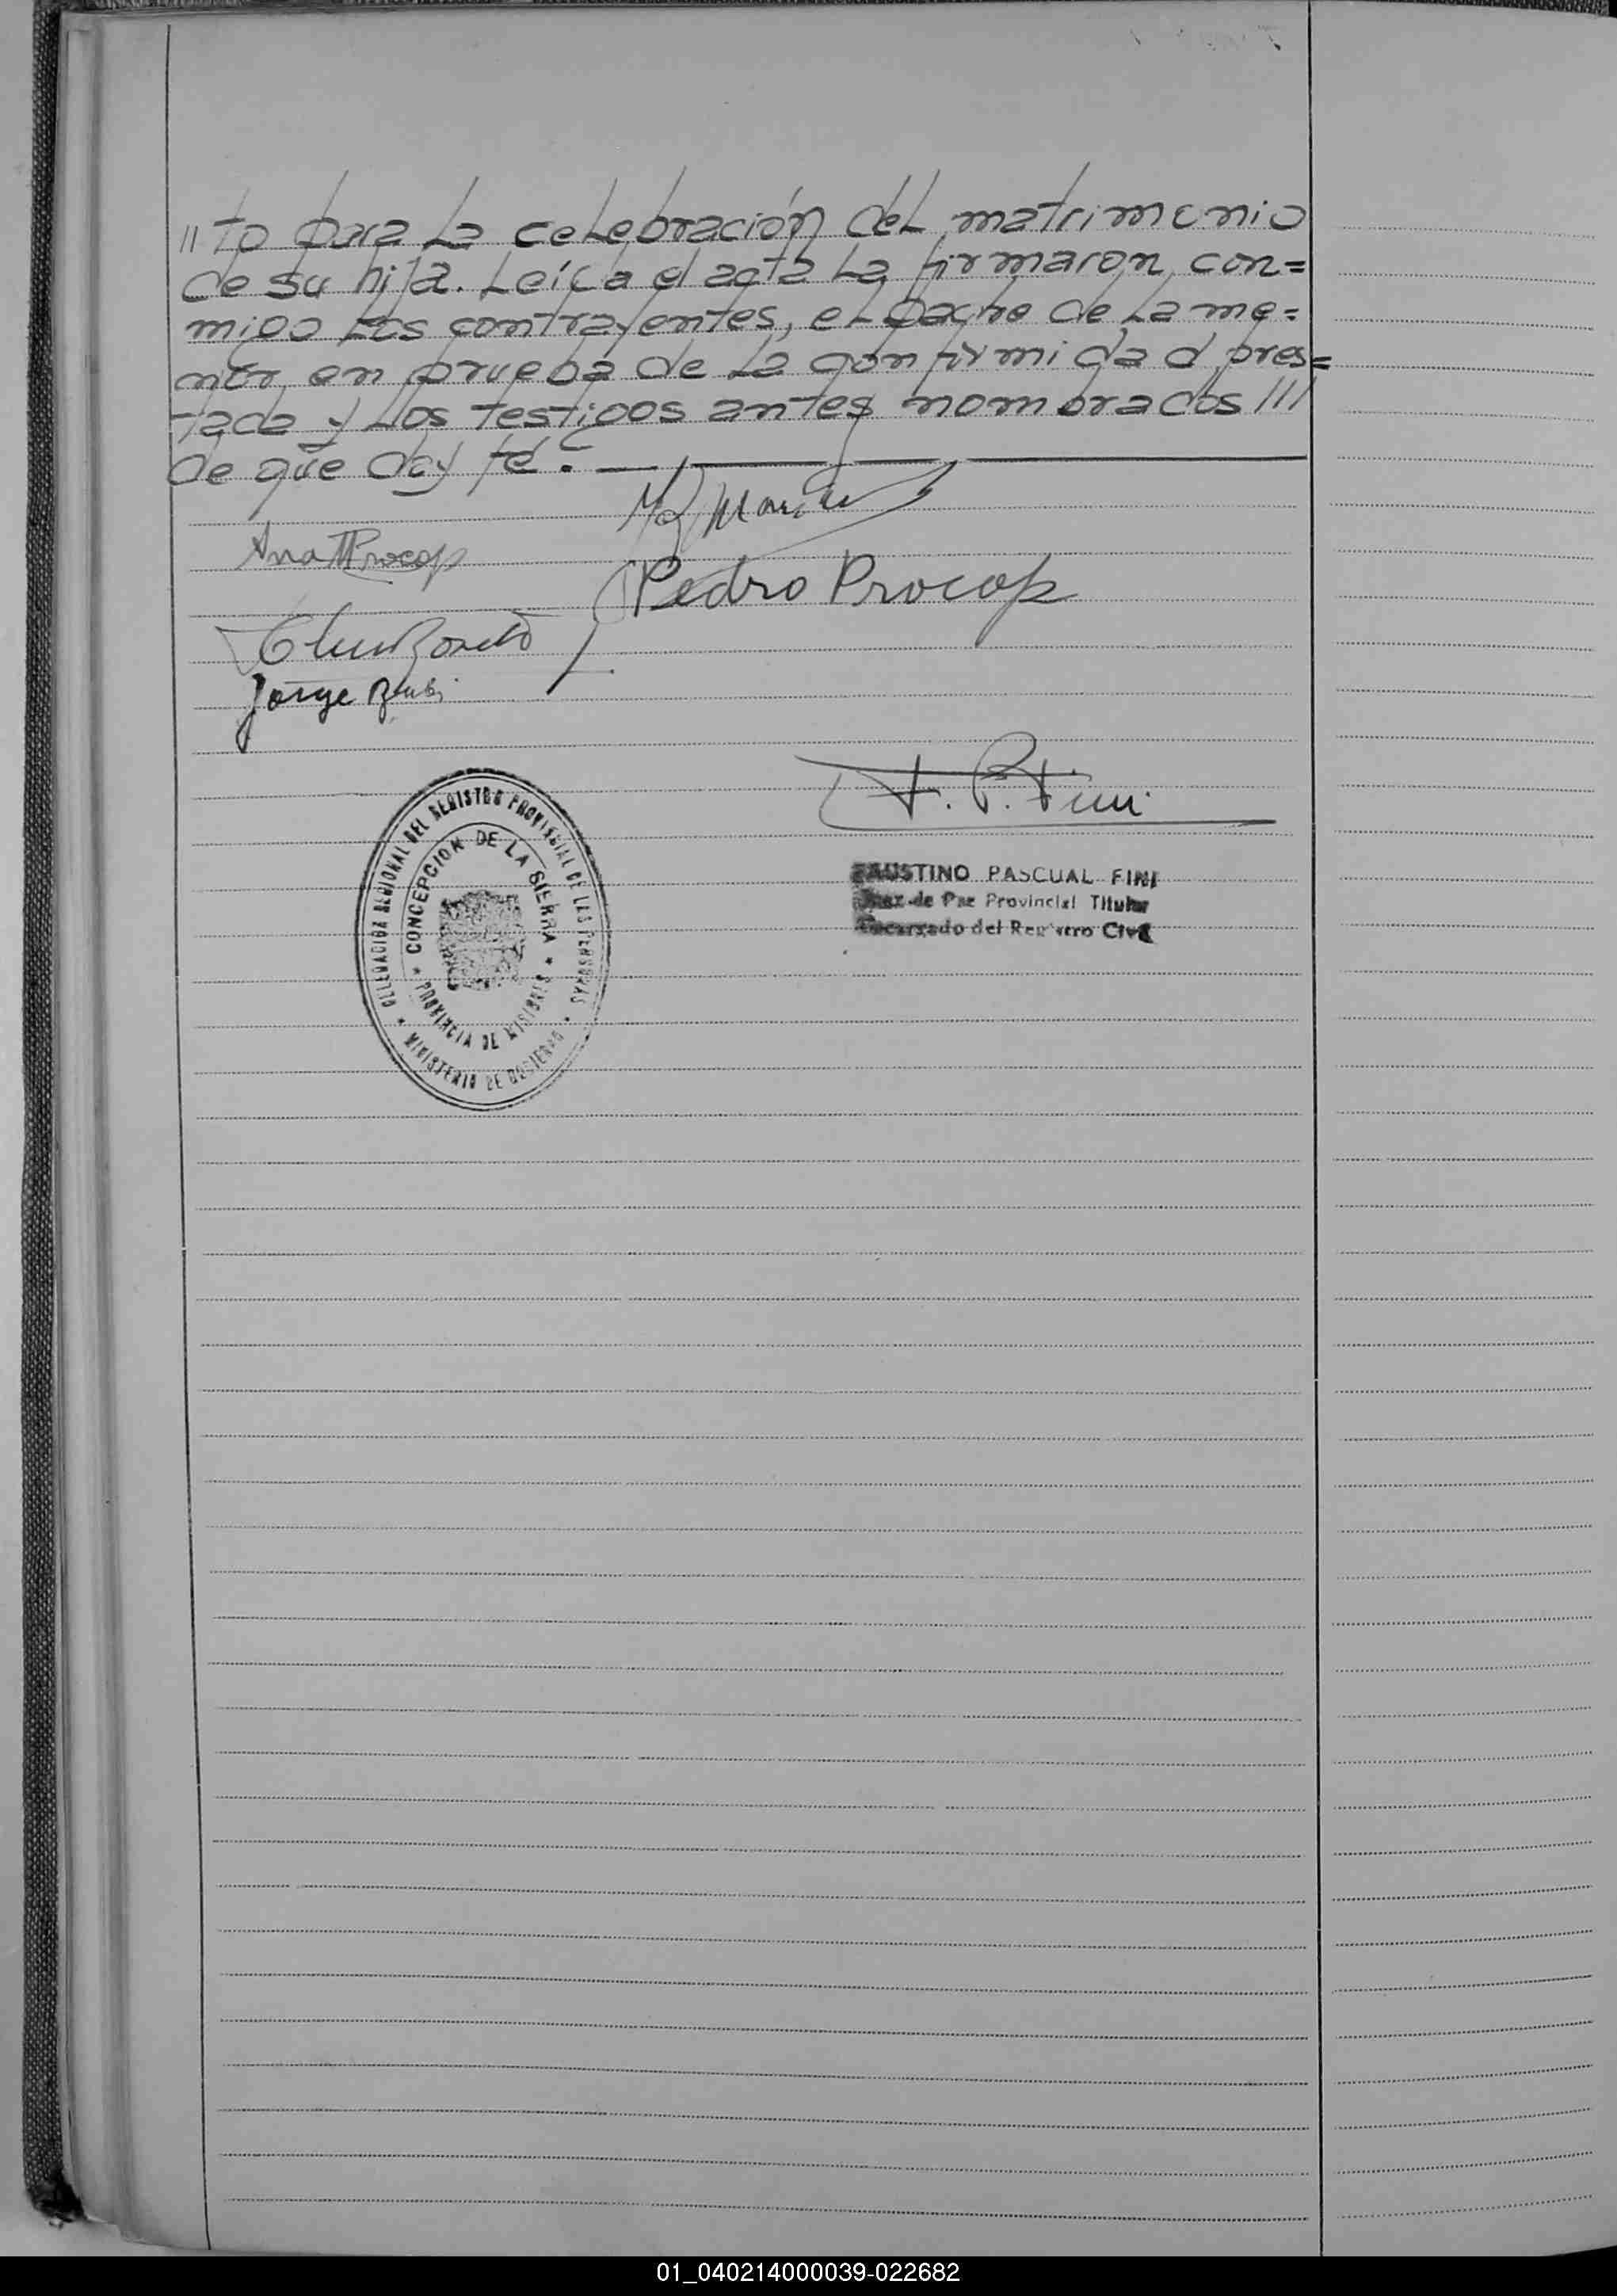 //to para la celebración del matrimonio
de su hija. Leída el acta la firmaron, con=
migo los contrayentes, el padre de la me=
nor, en prueba de la confirmidad pres=
tada y llos testigos antes nombrados ///
de que doy fé. —
Ana M Procop
Pedro Procop
Jorge
F. P. Fini
DELEGACION REGIONAL DEL REGISTRO PROVINCIAL DE LAS PERSONAS
* MINISTERIO DE GOBIERNO *
CONCEPCION DE LA SIERRA
* PROVINCIA DE MISIONES *
FAUSTINO PASCUAL FINI
Juez de Paz Provincial Titular
Encargado del Registro Civil
01_040214000039-022682